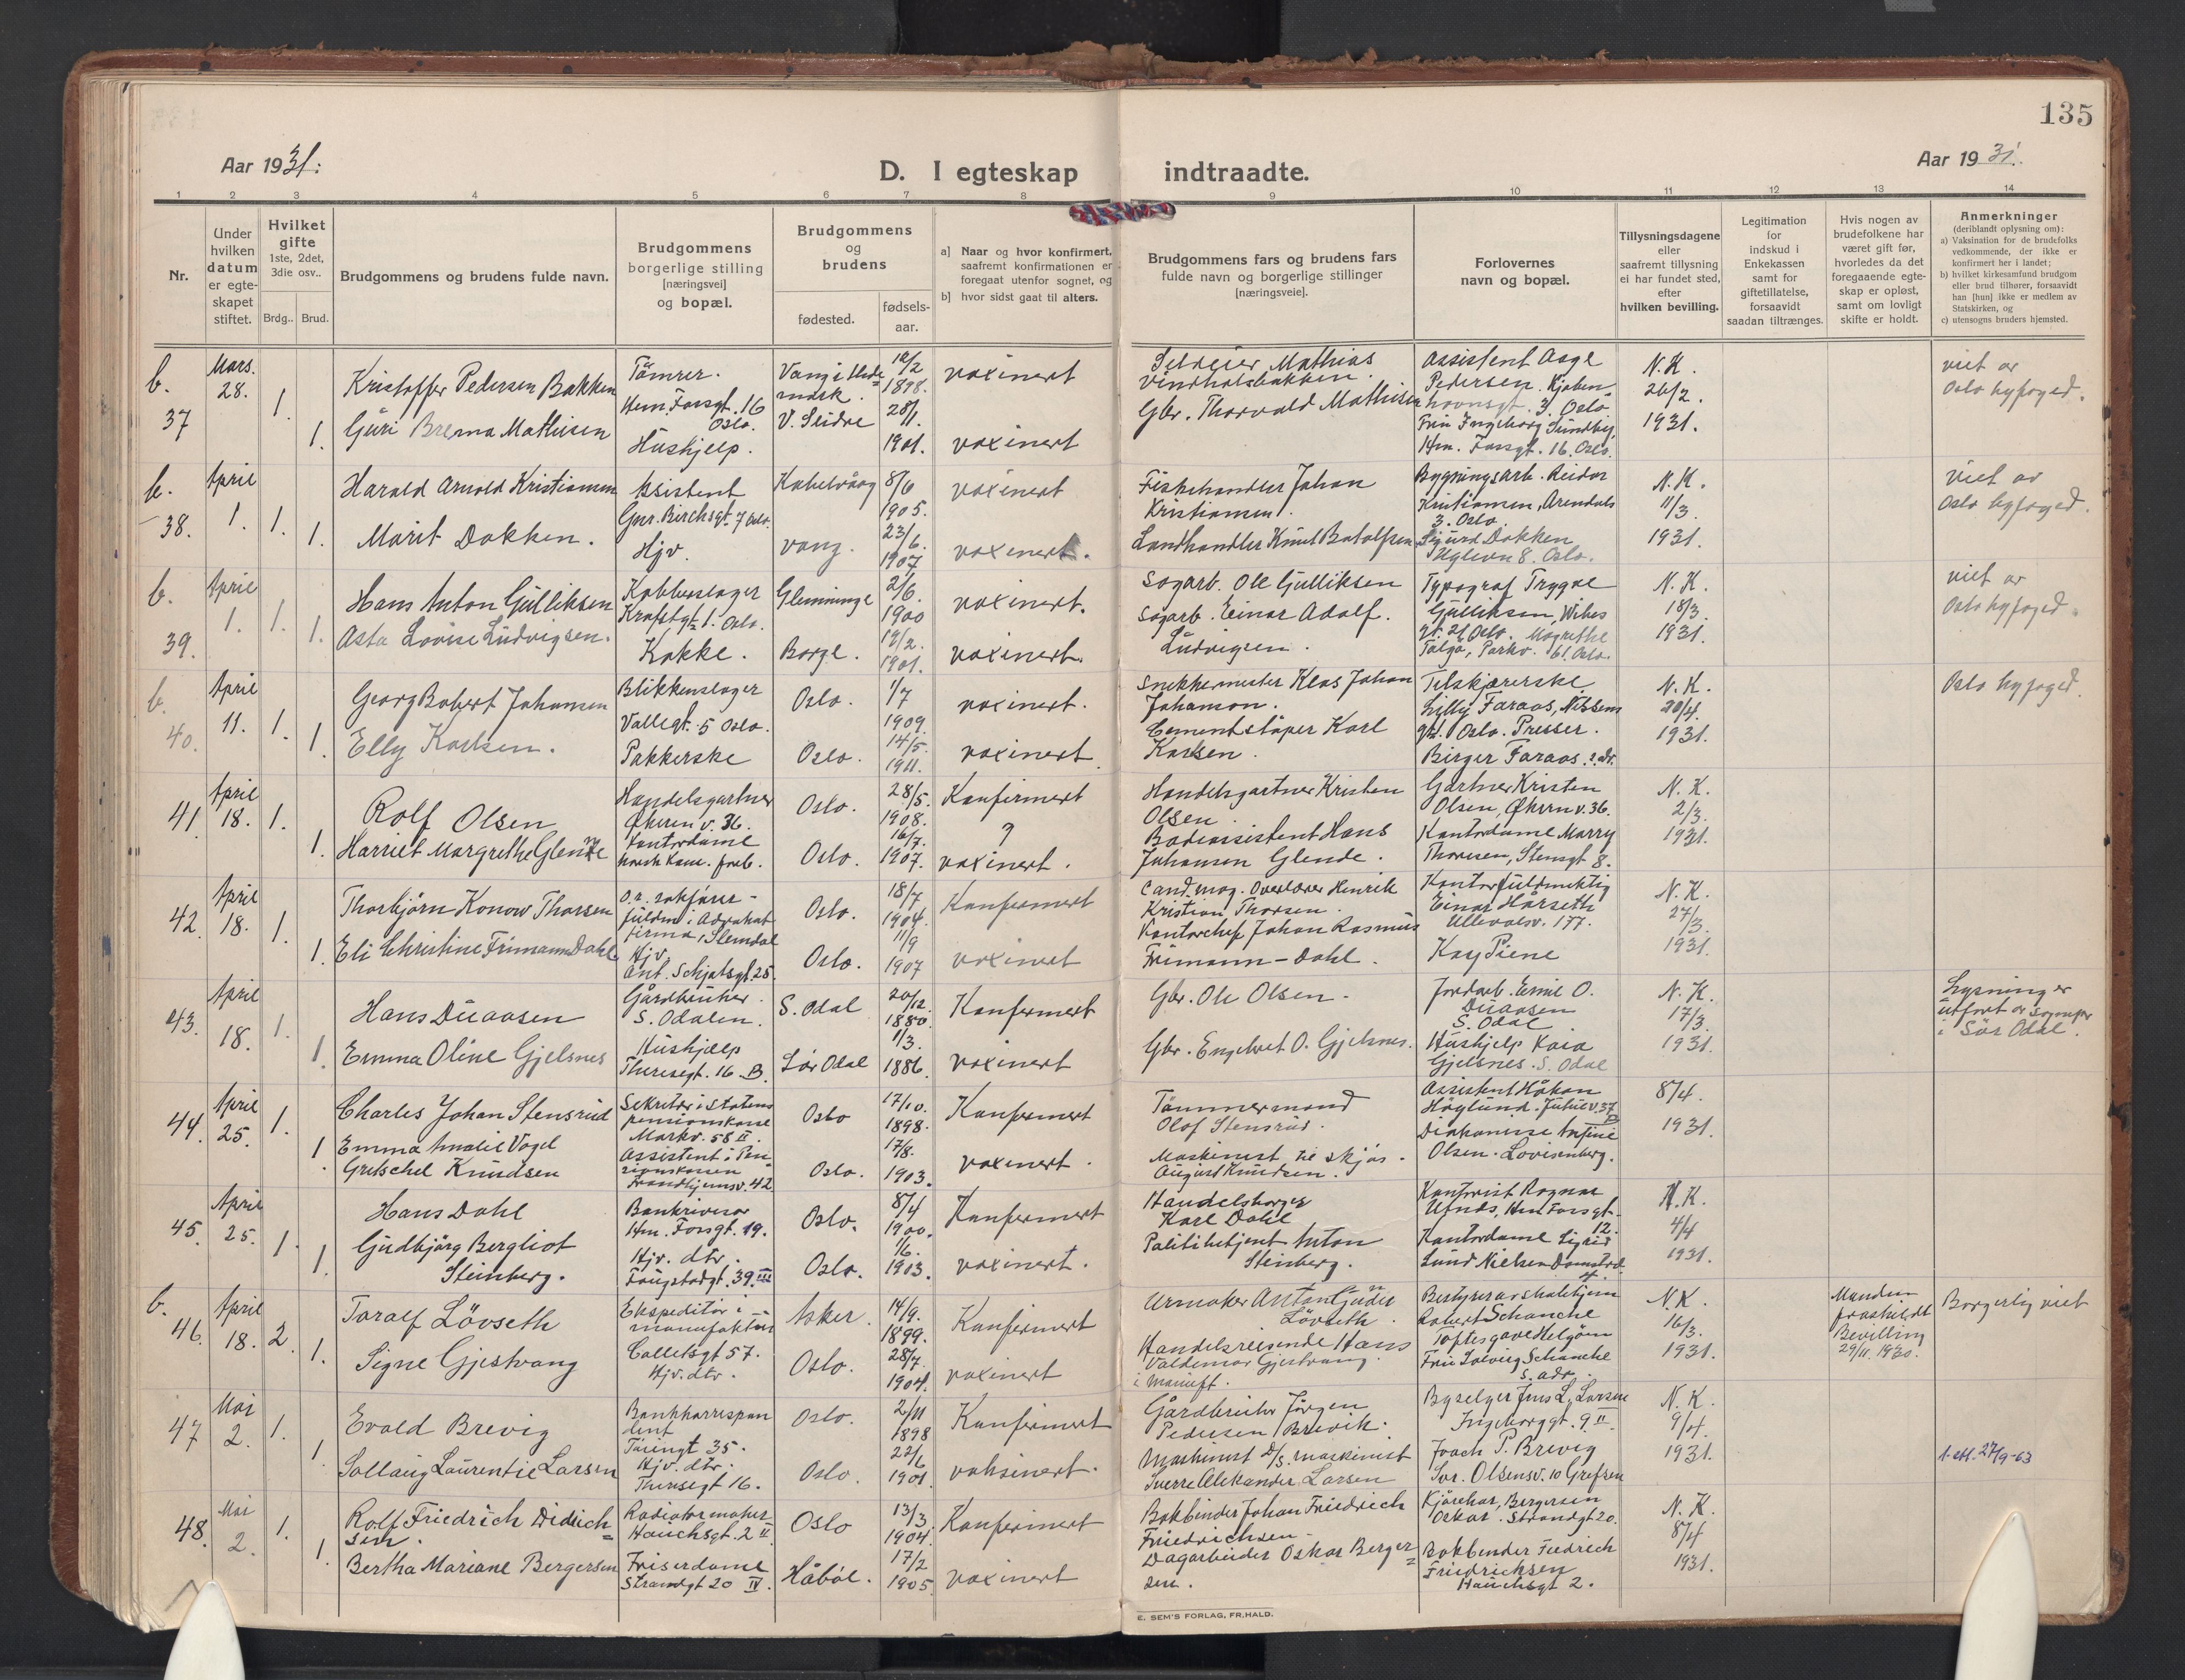 135
Aar 1931.
D. I egteskap indtraadte.
Aar 1931.
1 2 3 4 5 6 7 8 9 10 11 12 13 14
Nr.
Under hvilken datum er egteskapet stiftet.
Hvilket gifte 1ste, 2det, 3die osv..
Brdg.. Brud.
Brudgommens og brudens fulde navn.
Brudgommens borgerlige stilling [næringsvei] og bopæl.
Brudgommens og brudens
fødested.
fødsels-aar.
a] Naar og hvor konfirmert, saafremt konfirmationen er foregaat utenfor sognet, og
b] hvor sidst gaat til alters.
Brudgommens fars og brudens fars fulde navn og borgerlige stillinger [næringsveie].
Forlovernes navn og bopæl.
Tillysningsdagene eller saafremt tillysning ei har fundet sted, efter hvilken bevilling.
Legitimation for indskud i Enkekassen samt for giftetillatelse, forsaavidt saadan tiltrænges.
Hvis nogen av brudefolkene har været gift før, hvorledes da det foregaaende egteskap er opløst, samt om lovligt skifte er holdt.
Anmerkninger (deriblandt oplysning om):
a) Vaksination for de brudefolks vedkommende, der ikke er konfirmert her i landet;
b) hvilket kirkesamfund brudgom eller brud tilhører, forsaavidt han [hun] ikke er medlem av Statskirken, og
c) utensogns bruders hjemsted.
b. 37 Mars. 28. 1. 1.
Kristoffer Pedersen Bakken
Guri Brerna Mathisen
Tömrer.
Hem. Forsgt. 16 Oslo.
Hushjelp.
V. Slidre
1898.
28/1. 1901.
vaxinert
vaxinert
Mathias
Gbr. Thorvald Mathisen
Assistent Aage Pedersen. Kjøbenhavnsgt. 3. Oslo.
Fru Ingeborg Sundby, Hm. Forsgt. 16. Oslo.
N.K. 26/2. 1931.
viet av Oslo byfoged.
b. 38. April 1. 1. 1.
Harald Arnold Kristiansen
Marit Dokken.
Assistent
Gnr. Birchsgt. 7 Oslo.
Hjv.
Kabelvaag
vang.
8/6 1905.
23/6. 1907
vaxinert
vaxinert.
Fiskehandler Johan Kristiansen.
Landhandler Knut
Bygningsarb. Reidar Kristiansen, Arendals 3. Oslo
Sigurd Dokken
8. Oslo.
N.K. 11/3. 1931.
viet av Oslo byfoged.
b. 39. April 1. 1. 1.
Hans Anton Gulliksen
Asta Lovise Ludvigsen.
Kobberslager
1. Oslo.
Kokke.
Glemminge
Borge.
2/6. 1900
19/2. 1901.
vaxinert.
vaxinert.
Sagarb. Ole Gulliksen
Sagarb. Einar Adolf. Ludvigsen.
Typograf Trygve Gulliksen, Wibes gt. 21 Oslo. Magrethe
Parkv. 61. Oslo.
N.K. 18/3. 1931.
viet av Oslo byfoged.
b. 40. April 11. 1. 1.
Georg Robert Johansen
Elly Karlsen.
Blikkenslager
Vallegt. 5 Oslo.
Pakkerske
Oslo.
Oslo.
1/7 1909.
14/5. 1911.
vaxinert.
vaxinert.
Snekkermester Klas Johan Johanson.
Cementstöper Karl Karlsen.
Tilskjærerske Lilly Faraas, Nilsens gt. Oslo. Presser.
Birger Faraas. s. adr.
N.K. 20/4. 1931.
Oslo byfoged.
41. April 18. 1. 1.
Rolf Olsen
Harriet Margrethe Glende
Handelsgartner
Økern v. 36.
Kontordame
Oslo.
Oslo.
28/5. 1908.
16/7. 1907.
Konfirmert
?
vaxinert.
Handelsgartner Kristen Olsen.
Hans Johansen Glende.
Gartner Kristen Olsen, Økern v. 36.
Kontordame Marry Thoresen, Stensgt 8.
N.K. 2/3. 1931.
42. April 18. 1. 1.
Thorbjörn Konow Thorsen
Eli Christine Frimann Dahl
O.r. sakförer-
fuldm. i Advokat
firma, Slemdal
Hjv.
Ant. Schjøtsgt. 25.
Oslo.
Oslo.
18/7 1904.
11/9 1907
Konfirmert
vaxinert
Cand. mag. Overlærer Henrik Kristian Thorsen.
Kontorchef Johan Rasmus Frimann-Dahl.
Kontorfuldmektig Einar Hårseth Ullevalsv. 177.
Kay Piene
N.K. 27/3. 1931.
43. April 18. 1. 1.
Hans Duaasen
Emma Oline Gjelsnes
Gårdbruker.
S. Odalen.
Hushjelp
Theresegt. 16 B.
S. Odal
Sör Odal
20/12. 1880.
11/3. 1886.
Konfermert
vaxinert
Gbr. Ole Olsen.
Gbr. Engebret O. Gjelsnes.
Jordarb. Emil O. Duaasen S. Odal
Hushjelp Kaia Gjelsnes. S. Odal
N.K. 17/3. 1931.
Lysning er utfört av sognepr i Sör Odal.
44. April 25. 1. 1.
Charles Johan Stensrud
Emma Amalie Vogel Gretschel Knudsen
Sekretær i Statens pensionskasse
Markv. 58 II.
Assistent i Pensionskassen
Trondhjemsv. 42.
Oslo
Oslo.
17/10. 1898.
17/8. 1903.
Konfermert
vaxinert.
Tömmermand Olof Stensrud.
Maskinist til skjös. August Knudsen.
Assistent Håkon Höglund. v. 37
Diakonisse Olsen. Lovisenberg.
8/4. 1931.
45. April 25. 1. 1.
Hans Dahl
Gudbjörg Bergliot Steinberg.
Bankrevisor
Hm. Forsgt. 19.
Hjv. dtr.
Fougstadgt. 39 III
Oslo.
Oslo.
8/4 1900.
1/6. 1903.
Konfermert
vaxinert.
Handelsborger Karl Dahl
Politibetjent Anton Steinberg.
Kontorist Ragnar Ufnds, Hm Forsgt. 12.
Kontordame Sigrid Lund Nielsen
N.K. 4/4 1931.
b. 46. April 18. 2. 1.
Toralf Lövseth
Signe Gjestvang
Ekspeditör i manufaktur
Colletsgt 57.
Hjv. dtr.
Asker.
Oslo.
14/9. 1899.
28/7. 1904.
Konfirmert
vaxinert
Urmaker Anton Lövseth.
Handelsreisende Hans Valdemar Gjestvang. i manuft.
Bestyrer av skolehjem Robert Schanche Toftesgave Helgöen
Fru Solveig Schanche s. adr.
N.K. 16/3. 1931.
Manden fraskildt Bevilling 29/11. 1930.
Borgerlig viet
47. Mai 2. 1. 1.
Evald Brevig
Sollaug Laurentie Larsen
Bankkorrespondent
35.
Hjv. dtr.
Theresegt 16.
Oslo.
Oslo.
2/11 1898
22/6 1901.
Konfirmert
vaksinert.
Gårdbruker Jörgen Pedersen Brevik.
Maskinist D/S. maskinist Sverre Aleksander Larsen
Byselger Jens L. Larsen Ingeborggt. 9 II.
Joach P. Brevig
Sor. Olsensv. 10 Grefsen
N.K. 9/4. 1931.
1. att. 27/9-63
48. Mai 2. 1. 1.
Rolf Friedrich Didrichsen.
Bertha Mariane Bergersen
Radiatormaker
Hauchsgt. 2 II
Friserdame
Strandgt 20 IV.
Oslo
Håböl.
13/3 1904.
17/2 1905.
Konfirmert
vaxinert
Bokbinder Johan Friedrich Friedrichsen
Dagarbeider Oskar Bergersen.
Kjörekar, Bergersen Oskar. Strandgt 20.
Bokbinder Fiedrich Friedricksen Hauchsgt 2.
N.K. 8/4 1931.
E. SEM'S FORLAG, FR.HALD.